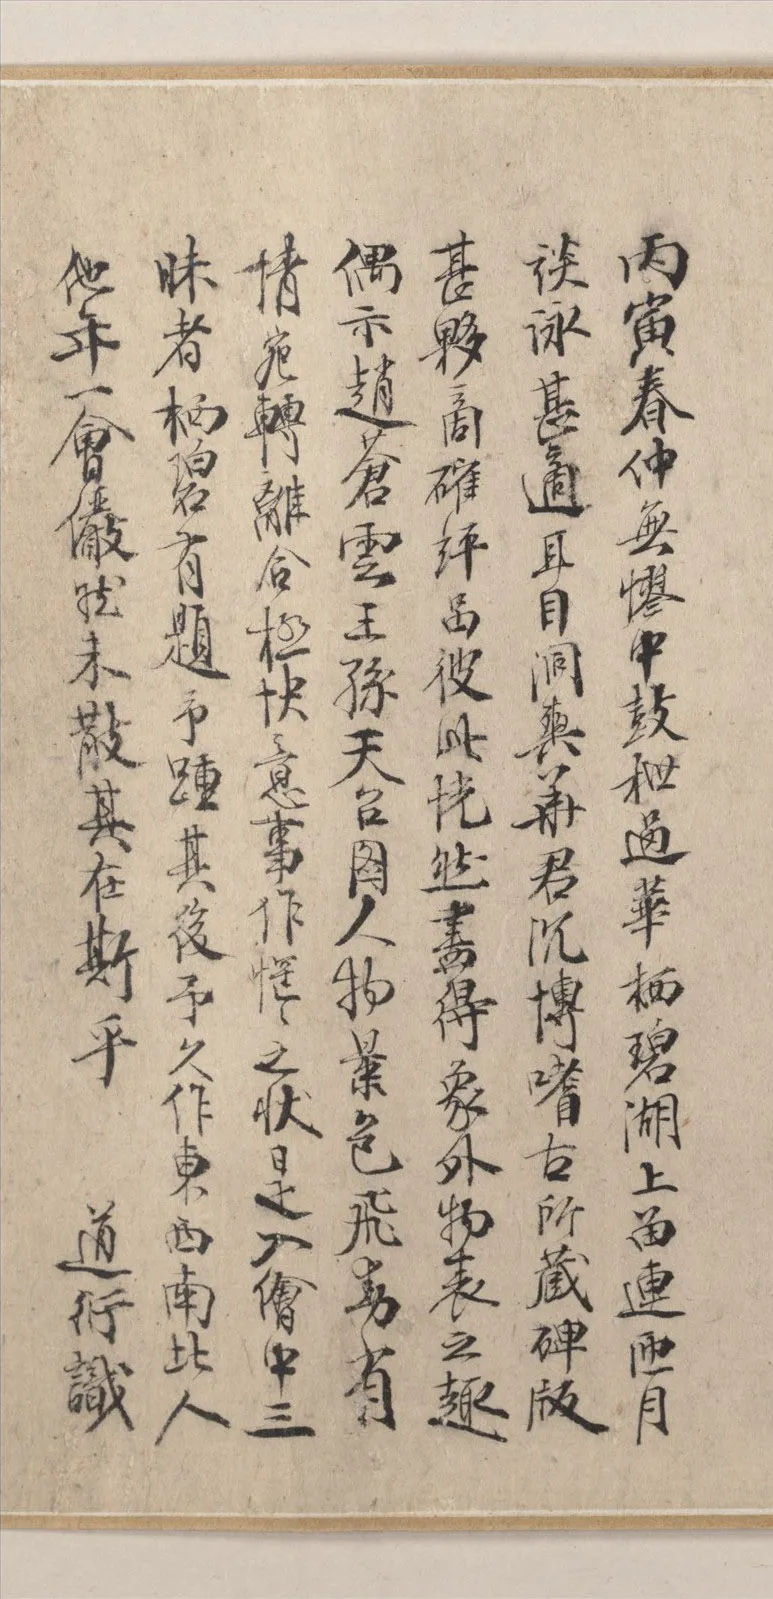 丙寅春仲無憀中鼓枻過華栖碧湖上留連匝月
談詠甚適耳目洞爽華君沉博嗜古所蔵碑版
甚夥商確評品彼此恍然盡得象外物表之趣
偶示趙蒼雲王孫天台图人物景色飛動有
情宛轉離合極快意事作惝々之狀是入繪中三
昧者栖碧有題予踵其後予久作東西南北人
他年一會儼然未散其在斯乎
道衍識